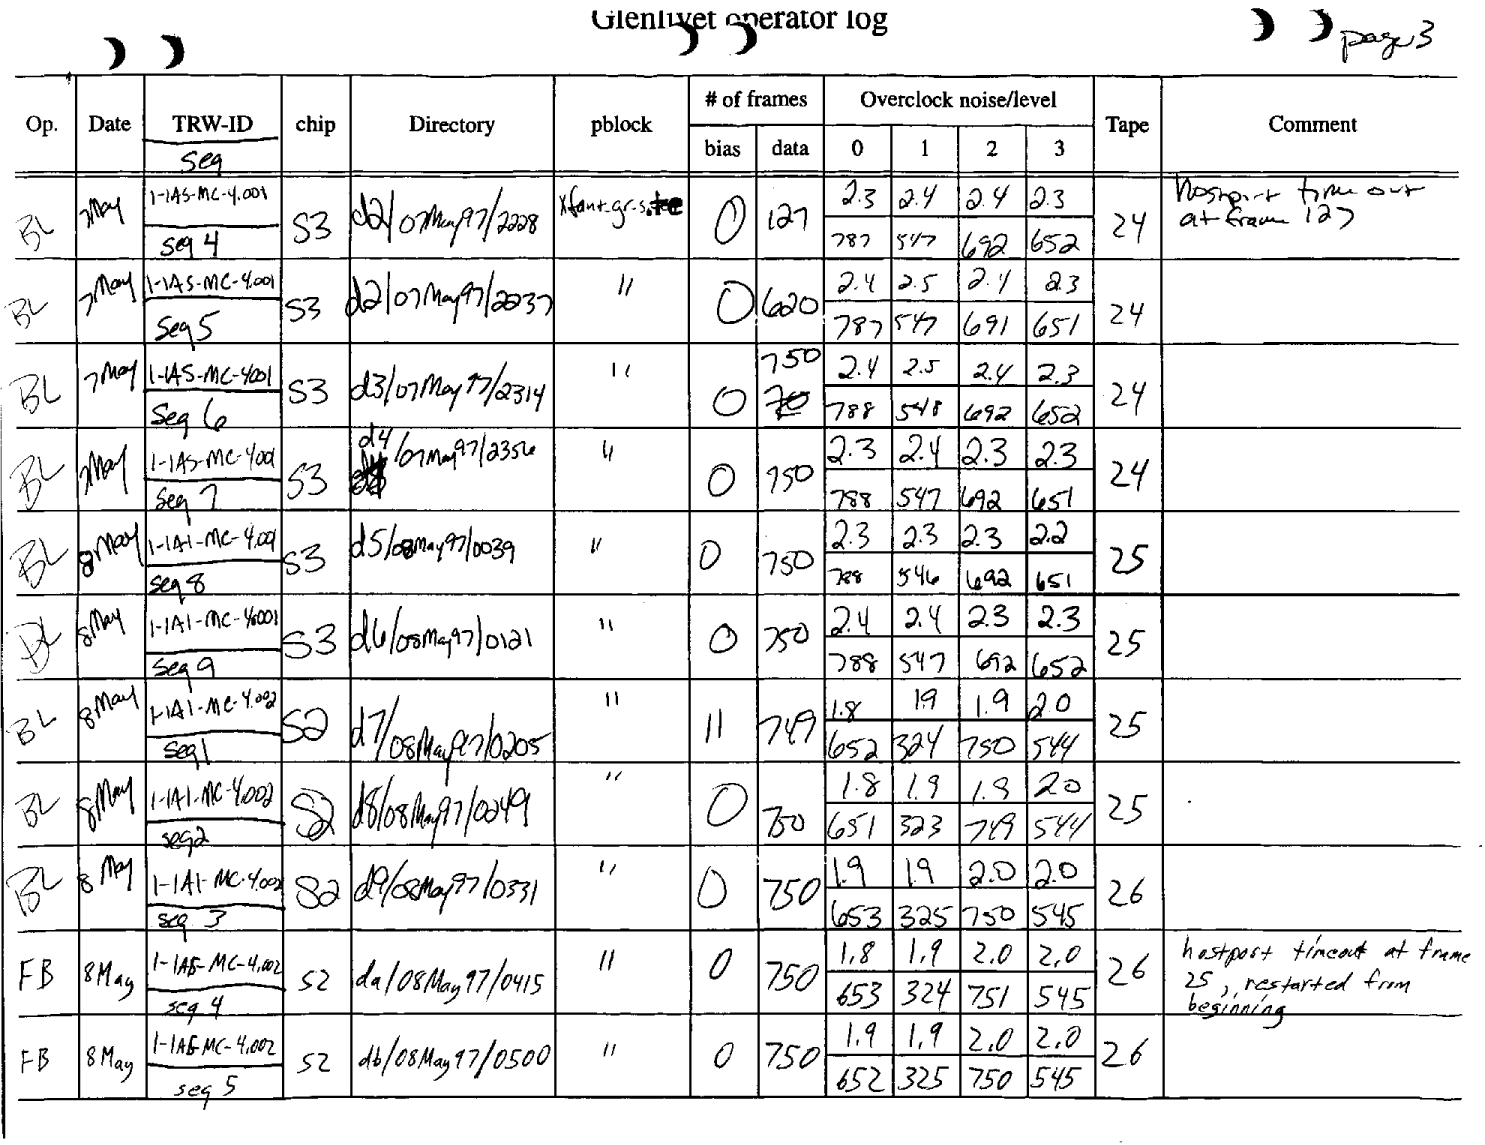 Glenlivet operator log
page 3
Op. Date TRW-ID chip Directory pblock # of frames Overclock noise/level Tape Comment
seq bias data 0 1 2 3
BL 7May 1-IAS-MC-4.001 S3 d2/07May97/2228 0 127 2.3 2.4 2.4 2.3 24 hostport time out
seq 4 787 547 692 652 at frame 127
BL 7May 1-IAS-MC-4.001 S3 d2/07May97/2237 " 0 620 2.4 2.5 2.4 2.3 24
Seq 5 787 547 691 651
BL 7May 1-IAS-MC-4.001 S3 d3/07May97/2314 " 0 750 2.4 2.5 2.4 2.3 24
Seq 6 788 548 692 652
BL 7May 1-IAS-MC-4.001 S3 d4/07May97/2356 " 0 750 2.3 2.4 2.3 2.3 24
Seq 7 788 547 692 651
BL 8May 1-IAI-MC-4.001 S3 d5/08May97/0039 " 0 750 2.3 2.3 2.3 2.2 25
seq 8 788 546 692 651
BL 8May 1-IAI-MC-4.001 S3 d6/08May97/0121 " 0 750 2.4 2.4 2.3 2.3 25
seq 9 788 547 692 652
BL 8May 1-IAI-MC-4.002 S2 d7/08May97/0205 " 11 749 1.8 1.9 1.9 2.0 25
seq1 652 324 750 544
BL 8May 1-IAI-MC-4.002 S2 d8/08May97/0249 " 0 750 1.8 1.9 1.9 2.0 25
seq2 651 323 749 544
BL 8May 1-IAI-MC-4.002 S2 d9/08May97/0331 " 0 750 1.9 1.9 2.0 2.0 26
seq 3 653 325 750 545
FB 8May S2 da/08May97/0415 " 0 750 1.8 1.9 2.0 2.0 26 hostport timeout at frame
seq 4 653 324 751 545 25, restarted from
beginning
FB 8May S2 db/08May97/0500 " 0 750 1.9 1.9 2.0 2.0 26
seq 5 652 325 750 545